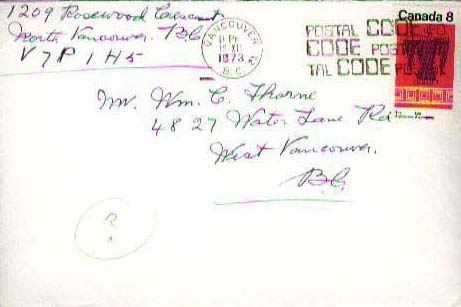 1209 Rosewood Crescent
North Vancouver. B.C.
V7P 1H5
VANCOUVER
PM
XII
1973
B.C.
POSTAL CODE PO
CODE POSTAL
TAL CODE POSTAL
Canada 8
Mr. Wm. C. Thorne
4827 Water Lane Rd
West Vancouver.
B.C.